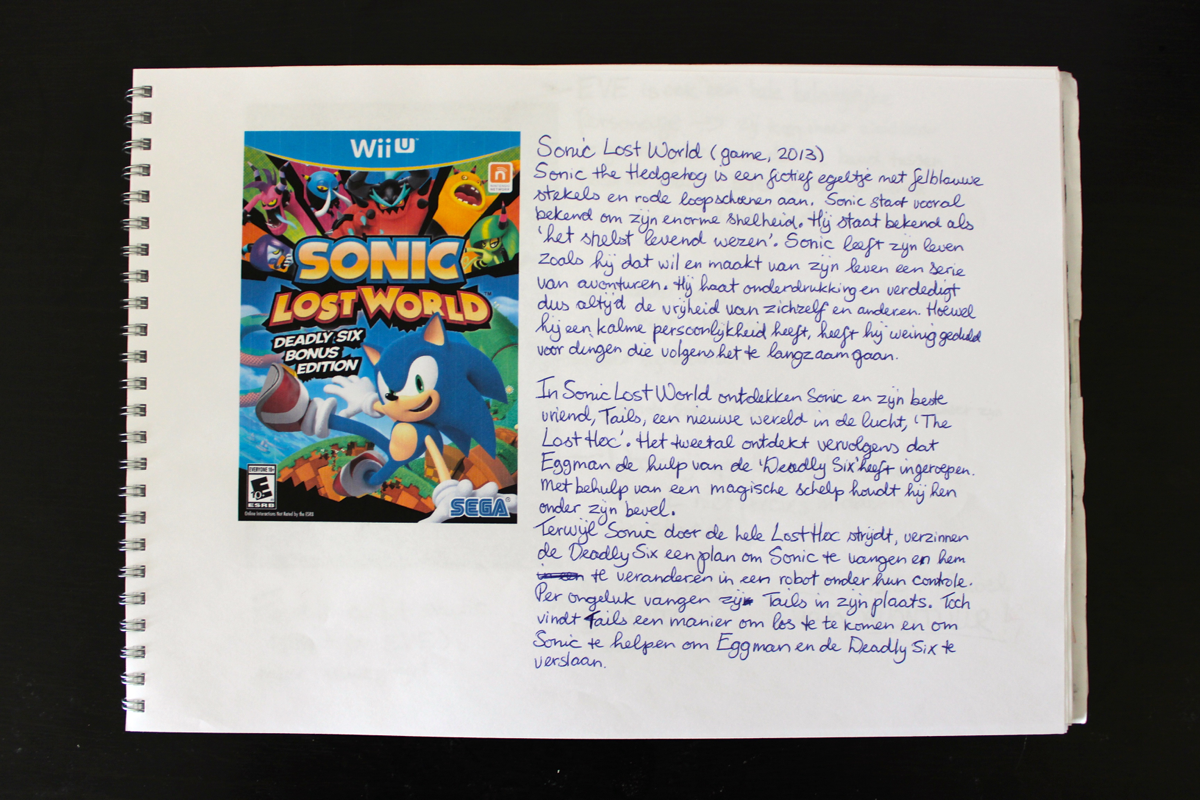 EVE is
Wii U
SONIC
LOST WORLD
DEADLY SIX
BONUS
EDITION
EVERYONE 10+
E
10+
ESRB
Online Interactions Not Rated by the ESRB
SEGA
Sonic Lost World (game, 2013)
Sonic the Hedgehog is een fictief egeltje met felblauwe
stekels en rode loopschoenen aan. Sonic staat vooral
bekend om zijn enorme snelheid. Hij staat bekend als
'het snelst levend wezen'. Sonic leeft zijn leven
zoals hij dat wil en maakt van zijn leven een serie
van avonturen. Hij haat onderdrukking en verdedigt
dus altijd de vrijheid van zichzelf en anderen. Hoewel
hij een kalme persoonlijkheid heeft, heeft hij weinig geduld
voor dingen die volgens het te langzaam gaan.
In Sonic Lost World ontdekken Sonic en zijn beste
vriend, Tails, een nieuwe wereld in de lucht, 'The
Lost Hex'. Het tweetal ontdekt vervolgens dat
Eggman de hulp van de 'Deadly Six' heeft ingeroepen.
Met behulp van een magische schelp houdt hij hen
onder zijn bevel.
Terwijl Sonic door de hele Lost Hex strijdt, verzinnen
de Deadly Six een plan om Sonic te vangen en hem
te veranderen in een robot onder hun controle.
Per ongeluk vangen zij Tails in zijn plaats. Toch
vindt Tails een manier om los te te komen en om
Sonic te helpen om Eggman en de Deadly Six te
verslaan.